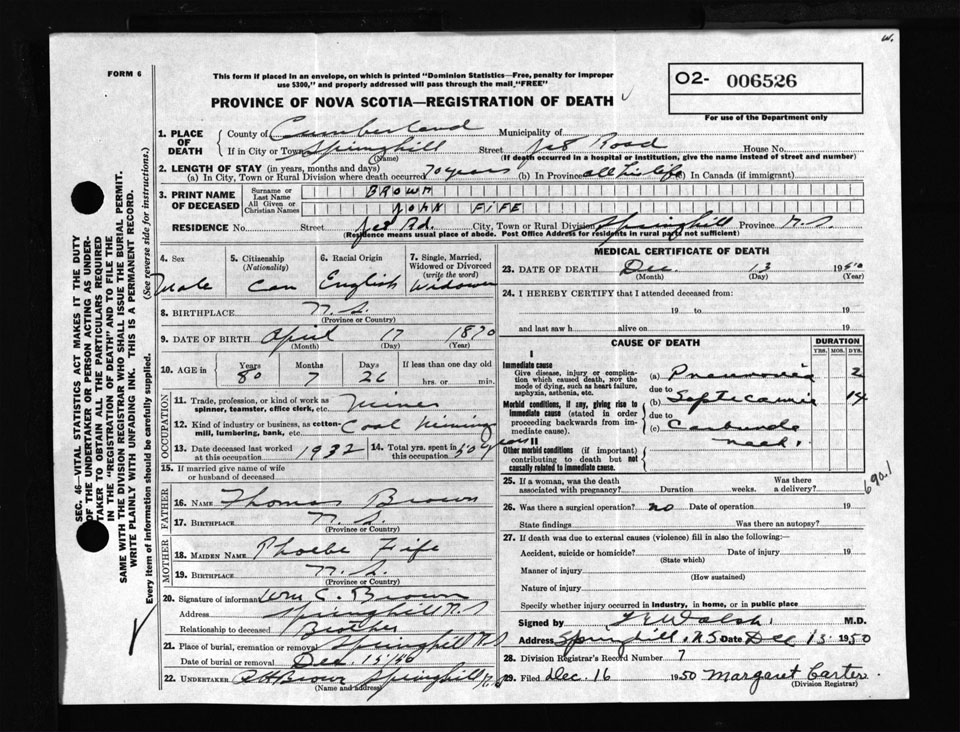 W.
FORM 6
This form if placed in an envelope, on which is printed "Dominion Statistics—Free, penalty for improper
use $300," and properly addressed will pass through the mail "FREE"
O2- 006526
For use of the Department only
PROVINCE OF NOVA SCOTIA—REGISTRATION OF DEATH
1. PLACE OF DEATH
County of Cumberland Municipality of
If in City or Town Springhill Street Jct Road House No.
(Name) (If death occurred in a hospital or institution, give the name instead of street and number)
2. LENGTH OF STAY (in years, months and days)
(a) In City, Town or Rural Division where death occurred 70 years (b) In Province all his life (c) In Canada (if immigrant)
3. PRINT NAME OF DECEASED
Surname or Last Name BROWN
All Given or Christian Names JOHN FIFE
RESIDENCE No. Street Jct Rd. City, Town or Rural Division Springhill Province N.S.
(Residence means usual place of abode. Post Office Address for residents in rural parts not sufficient)
4. Sex Male
5. Citizenship (Nationality) Can
6. Racial Origin English
7. Single, Married, Widowed or Divorced (write the word) Widower
8. BIRTHPLACE N.S.
(Province or Country)
9. DATE OF BIRTH April 17 1870
(Month) (Day) (Year)
10. AGE in Years Months Days If less than one day old
80 7 26 hrs. or min.
OCCUPATION
11. Trade, profession, or kind of work as spinner, teamster, office clerk, etc. Miner
12. Kind of industry or business, as cotton-mill, lumbering, bank, etc. Coal Mining
13. Date deceased last worked at this occupation 1932
14. Total yrs. spent in this occupation 50 years
15. If married give name of wife or husband of deceased
FATHER
16. NAME Thomas Brown
17. BIRTHPLACE N.S.
(Province or Country)
MOTHER
18. MAIDEN NAME Phoebe Fife
19. BIRTHPLACE N.S.
(Province or Country)
20. Signature of informant Wm C. Brown
Address Springhill N.S
Relationship to deceased Brother
21. Place of burial, cremation or removal Springhill N.S
Date of burial or removal Dec. 15/50
22. UNDERTAKER Brown Springhill N.S
(Name and address)
MEDICAL CERTIFICATE OF DEATH
23. DATE OF DEATH Dec. 13 1950
(Month) (Day) (Year)
24. I HEREBY CERTIFY that I attended deceased from:
19 to 19
and last saw h alive on 19
CAUSE OF DEATH DURATION
YRS. MOS. DYS.
I
Immediate cause
Give disease, injury or complication which caused death, NOT the mode of dying, such as heart failure, asphyxia, asthenia, etc.
(a) Pneumonia 2
due to
Morbid conditions, if any, giving rise to immediate cause (stated in order proceeding backwards from immediate cause).
(b) Septecamie 14
due to
(c) Carbuncle
neck.
II
Other morbid conditions (if important) contributing to death but not causally related to immediate cause.
25. If a woman, was the death associated with pregnancy? Duration weeks. Was there a delivery?
26. Was there a surgical operation? no Date of operation 19
State findings Was there an autopsy?
27. If death was due to external causes (violence) fill in also the following:—
Accident, suicide or homicide? Date of injury 19
(State which)
Manner of injury
(How sustained)
Nature of injury
Specify whether injury occurred in industry, in home, or in public place
Signed by Walsh. M.D.
Address Springhill, N.S Date Dec 13 1950
28. Division Registrar's Record Number 7
29. Filed Dec. 16 1950 Margaret Carter
(Division Registrar)
690.1
SEC. 46—VITAL STATISTICS ACT MAKES IT THE DUTY
OF THE UNDERTAKER OR PERSON ACTING AS UNDER-
TAKER TO OBTAIN ALL THE PARTICULARS REQUIRED
IN THE "REGISTRATION OF DEATH" AND TO FILE THE
SAME WITH THE DIVISION REGISTRAR WHO SHALL ISSUE THE BURIAL PERMIT.
WRITE PLAINLY WITH UNFADING INK. THIS IS A PERMANENT RECORD.
Every item of information should be carefully supplied. (See reverse side for instructions.)